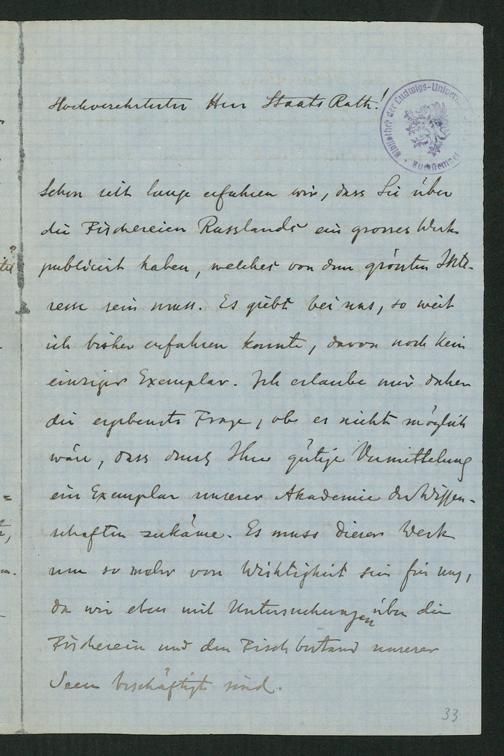 Hochverehrtester Herr StaatsRath!
Bibliothek der Ludwigs-Univers
Schon seit lange erfahren wir, dass Sie über
die Fischereien Russlands ein grosses Werk
publicirt haben, welches von dem grössten Inte-
resse sein muss. Es giebt bei uns, so weit
ich bisher erfahren konnte, davon noch kein
einziges Exemplar. Ich erlaube mir daher
die ergebenste Frage, ob es nicht möglich
wäre, dass durch Ihre gütige Vermittelung
ein Exemplar unserer Akademie der Wissen-
schaften zukäme. Es muss dieses Werk
um so mehr von Wichtigkeit sein für uns,
da wir eben mit Untersuchungen über die
Fischerein und den Fischbestand unserer
Seen beschäftigt sind.
33